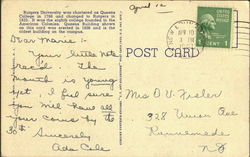 April 12
Rutgers University was chartered as Queens
College in 1766 and changed to Rutgers in
1825. It was the eighth college founded in the
American Colonies. Queens Building shown
on this card was erected in 1809 and is the
oldest building on the campus.
POST CARD
Dear Marie:-
Your little note
rec'd. The
month is young
yet, I feel sure
you will have all
your coins by the
30th. Sincerely
Ada Cole
APR 10
Mrs D V. Fesler
328 Union Ave
Runnemede
N J